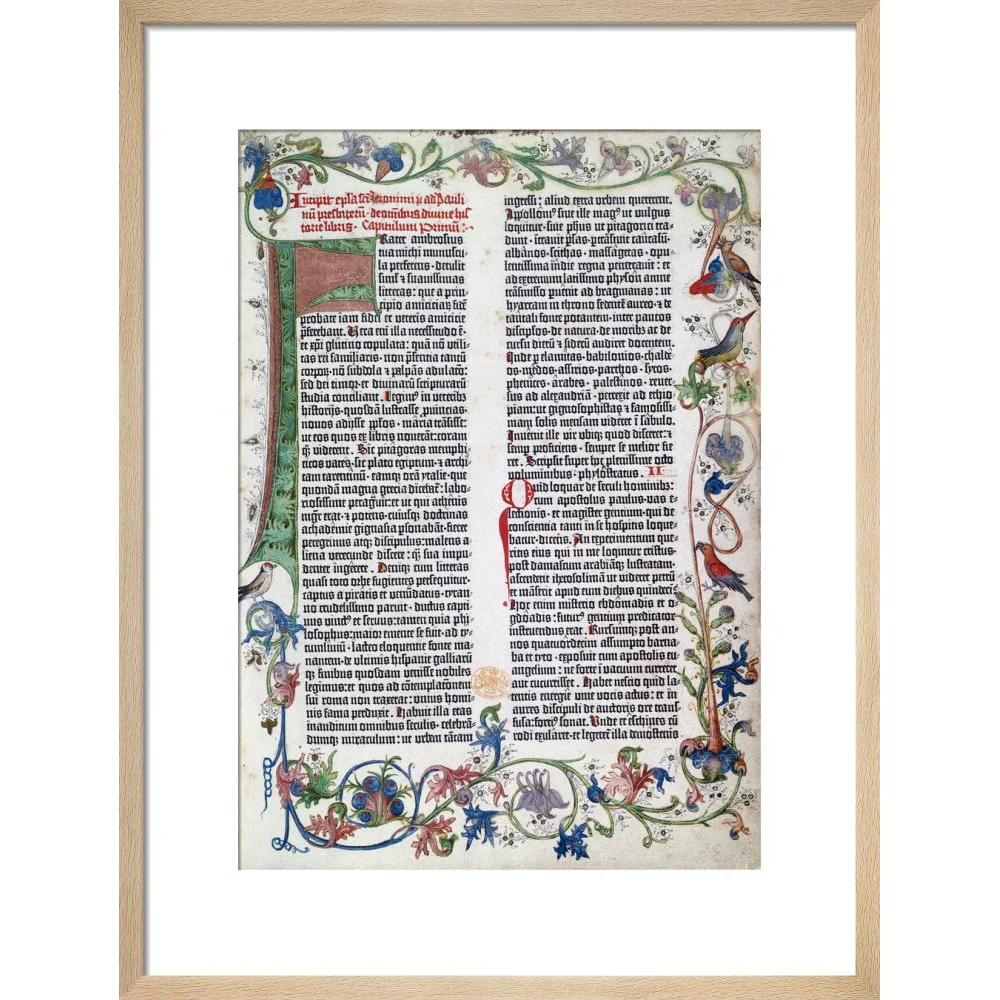 Incipit epla sci Jeronimi ad Pauli
nū presbiterū · de omībus divine his
torie libris · Capitulum Primū :·
Frater ambrosius
tua michi munuscu-
la perferens · detulit
siml' et suavissimas
litteras : que a prin-
cipio amiciciaꝝ fidē
probate iam fidei et veteris amicicie
p̄ferebant. Vera eni illa necessitudo ē·
et xp̄i glutino copulata : quā nō utili-
tas rei familiaris · non p̄sentia tantū
corpoꝝ · nō subdola et palpās adulatō :
sed dei timor · et divinaꝝ scripturarū
studia conciliant. Legim⁹ in veteribus
historijs · quosdā lustrasse p̄vincias ·
novos adijsse ppl'os · maria trāsisse :
ut eos quos ex libris noverāt : coram
qꝫ viderent. Sic pitagoras memphi-
ticos vates · sic plato egiptum · et archi-
tam tarentinū · eamqꝫ orā ytalie · que
quondā magna grecia dicebat̄ : labo-
riosissime peragravit : et ut qui athenis
mgr̄ erat · et potens · cuiusqꝫ doctrinas
achademie gignasia p̄sonabāt · fieret
peregrinus atqꝫ discipulus : malens a-
liena verecunde discere : qꝫ sua impu-
denter ingerere. Deniqꝫ cum litteras
quasi toto orbe fugientes persequitur ·
captus a piratis et venūdatus · tyran-
no crudelissimo paruit · ductus capti-
vus vinct⁹ et servus : tamen quia phi-
losophus : maior emente se fuit · ad ty-
tumlivium · lacteo eloquentie fonte ma-
nantem · de ultimis hispanie galliarūqꝫ
finibus quosdam venisse nobiles
legimus : et quos ad cōtemplatōnem
sui roma non traxerat : unius homi-
nis fama perduxit. Habuit illa etas
inauditum omnibus seculis · celebrā-
dumqꝫ miraculum : ut urbem tātam
ingressi : aliud extra urbem quererent.
Apolloni⁹ sive ille mag⁹ ut vulgus
loquitur · sive ph'us · ut pitagorici tra-
dunt · ītravit p̄sas · p̄trāsivit caucasū ·
albānos · scithas · massagetas · opu-
lentissima indie regna penetravit : et
ad extremum latissimo physon amne
trāsmisso puenit ad bragmanas : ut
hyarcam in throno sedentē aureo · et de
tantali fonte potantem · inter paucos
discipl'os · de natura · de moribꝫ ac de
cursu dieꝝ et sideꝝ audiret docentem.
Inde p elamitas · babilonios · chalde-
os · medos · assirios · parthos · syros ·
phenices · arabes · palestinos · rever-
sus ad alexandriā · perrexit ad ethio-
piam : ut gignosophistas et famosissi-
mam solis mensam videret in sabulo.
Invenit ille vir ubiqꝫ quod disceret : et
semp proficiens · semper se melior fie-
ret. Scripsit super hoc plenissime octo
voluminibus · phylostratus. II
Quid loquar de seculi hominibꝫ :
cum apostolus paulus · vas e-
lectionis · et magister gentium · qui de
conscientia tanti in se hospitis loque-
batur · dicens. An experimentum que-
ritis eius qui in me loquitur cristus ·
post damascum arabiāqꝫ lustratam :
ascenderit iherosolimā ut videret petrū
et māserit apud eum diebus quindecī.
Hoc enim misterio ebdōmadis et o-
gdoadis : futur⁹ gentium predicator
instruendus erat. Rursumqꝫ post an-
nos quatuordecim assumpto barna-
ba et tyto · exposuit cum apostolis eu-
angelium : ne forte ī vacuum curreret
aut cucurrisset. Habet nescio quid la-
tentis energie vive vocis actus : et in
aures discipuli de auctoris ore trans-
fusa : forti⁹ sonat. Unde et eschines cū
rodi exularet · et legeret̄ illa demostenis